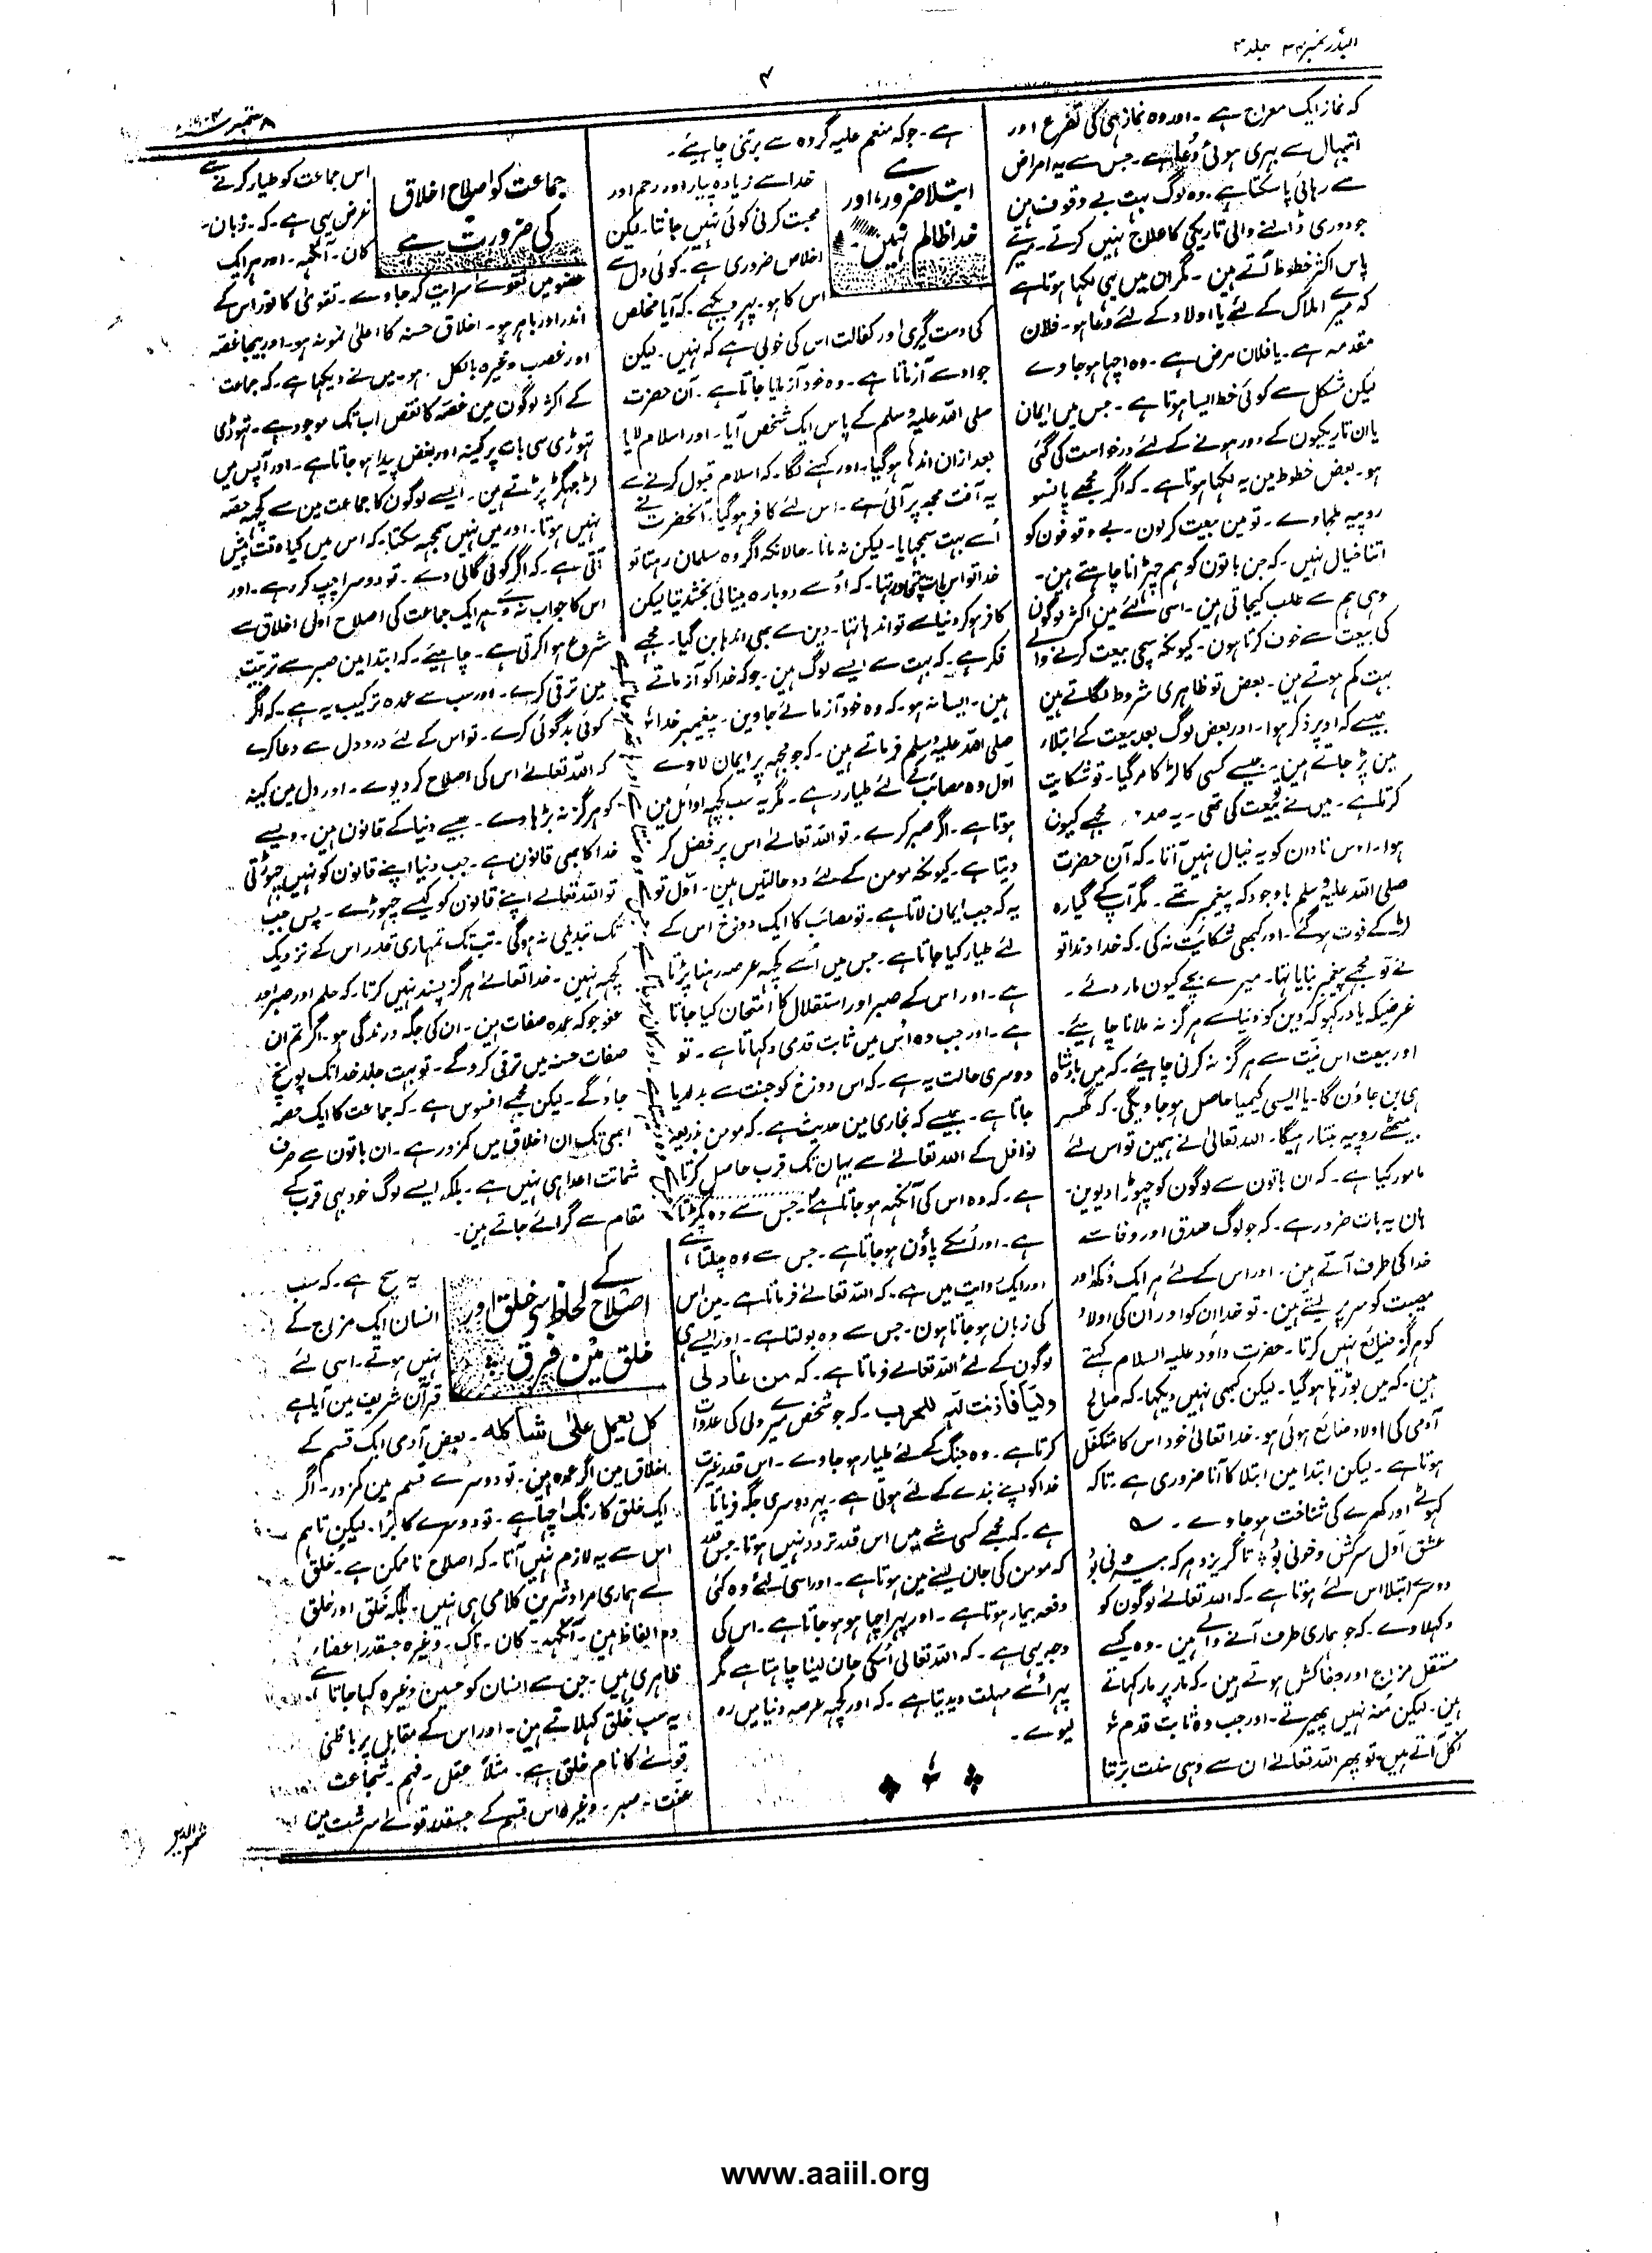 البدر نمبر ۳۴ جلد ۳
۴
۸ ستمبر ۱۹۰۴
کہ نماز ایک معراج ہے ۔ اور وہ نماز ہی کی تضرع اور
ابتہال سے بہری ہوئی دُعا ہے ۔ جس سے یہ امراض
سے رہائی پا سکتا ہے ۔ وہ لوگ بہت بے وقوف ہین
جو دوری ڈالنے والی تاریکی کا علاج نہیں کرتے ۔ میرے
پاس اکثر خطوط آتے ہین ۔ مگر ان میں یہی لکہا ہوتا ہے
کہ میرے املاک کے لئے یا اولاد کے لئے دعا ہو ۔ فلان
مقدمہ ہے ۔ یا فلان مرض ہے ۔ وہ اچہا ہو جاوے
لیکن مشکل سے کوئی خط ایسا ہوتا ہے ۔ جس میں ایمان
یا ان تاریکیون کے دور ہونے کے لئے درخواست کی گئی
ہو ۔ بعض خطوط مین یہ لکہا ہوتا ہے ۔ کہ اگر مجھے پانسو
روپیہ ملجاوے ۔ تو مین بیعت کر لون ۔ بے وقوفون کو
اتنا خیال نہیں ۔ کہ جن باتون کو ہم چہڑانا چاہتے ہین ۔
وہی ہم سے طلب کیجاتی ہین ۔ اسی لئے مین اکثر لوگون
کی بیعت سے خوف کرتا ہون ۔ کیونکہ سچی بیعت کرنے والے
بہت کم ہوتے ہین ۔ بعض تو ظاہری شروط لگاتے ہین
جیسے کہ اوپر ذکر ہوا ۔ اور بعض لوگ بعد بیعت کے ابتلاء
مین پڑ جاتے ہین ۔ جیسے کسی کا لڑکا مر گیا ۔ تو شکایت
کرتا ہے ۔ میں نے تو بیعت کی تھی ۔ یہ صدمہ مجھے کیون
ہوا ۔ اس نادان کو یہ خیال نہیں آتا ۔ کہ آن حضرت
صلی اللہ علیہ وسلم باوجودیکہ پیغمبر تھے ۔ مگر آپ کے گیارہ
لڑکے فوت ہو گئے ۔ اور کبھی شکایت نہ کی ۔ کہ خداوندا تو
نے تو مجھے پیغمبر بنایا تہا ۔ میرے بچے کیون مار دئے ۔
غرضیکہ یاد رکہو کہ دین کو دنیا سے ہرگز نہ ملانا چاہیئے ۔
اور بیعت اس نیت سے ہرگز نہ کرنی چاہیئے ۔ کہ میں بادشاہ
ہی بن جاؤن گا ۔ یا ایسی کیمیا حاصل ہو جاویگی ۔ کہ گھر
بیٹھے روپیہ بنتا رہیگا ۔ اللہ تعالیٰ نے ہمین تو اس لئے
مامور کیا ہے ۔ کہ ان باتون سے لوگون کو چہوڑا دیوین ۔
ہان یہ بات ضرور ہے ۔ کہ جو لوگ صدق اور وفا سے
خدا کی طرف آتے ہین ۔ اور اس کے لئے ہر ایک دُکھ اور
مصیبت کو سر پر لیتے ہین ۔ تو خدا ان کو اور ان کی اولاد
کو ہرگز ضائع نہیں کرتا ۔ حضرت داؤد علیہ السلام کہتے
ہین ۔ کہ میں بوڑہا ہو گیا ۔ لیکن کبھی نہیں دیکہا ۔ کہ صالح
آدمی کی اولاد ضائع ہوئی ہو ۔ خدا تعالیٰ خود اس کا متکفل
ہوتا ہے ۔ لیکن ابتدا مین ابتلا کا آنا ضروری ہے ۔ تاکہ
کہوٹے اور کھرے کی شناخت ہو جاوے ۔ ؎
عشق اول سرکش و خونی بود ؛ تا گریزد ہر کہ بیرونی بود
دوسرے ابتلا اس لئے ہوتا ہے ۔ کہ اللہ تعالےٰ لوگون کو
دکہلا وے ۔ کہ جو ہماری طرف آنے والے ہین ۔ وہ کیسے
مستقل مزاج اور جفاکش ہوتے ہین ۔ کہ مار پر مار کہاتے
ہین ۔ لیکن منہ نہیں پھیرتے ۔ اور جب وہ ثابت قدم
نکل آتے ہیں ۔ تو پھر اللہ تعالےٰ ان سے وہی سنت برتتا
ہے ۔ جو کہ منعم علیہ گروہ سے برتنی چاہیئے ۔
ابتلا ضرور ہے اور
خدا ظالم نہین ۔
خدا سے زیادہ پیار اور رحم اور
محبت کرنی کوئی نہیں جانتا ۔ لیکن
اخلاص ضروری ہے ۔ کوئی دل سے
اس کا ہو ۔ پہر دیکھے ۔ کہ آیا مخلص
کی دست گیری اور کفالت اس کی خوبی ہے کہ نہیں ۔ لیکن
جو اوسے آزماتا ہے ۔ وہ خود آزمایا جاتا ہے ۔ آن حضرت
صلی اللہ علیہ وسلم کے پاس ایک شخص آیا ۔ اور اسلام لایا
بعد ازان اندہا ہو گیا ۔ اور کہنے لگا ۔ کہ اسلام قبول کرنے سے
یہ آفت مجھ پر آئی ہے ۔ اس لئے کافر ہو گیا ۔ آنحضرت نے
اُسے بہت سمجہایا ۔ لیکن نہ مانا ۔ حالانکہ اگر وہ مسلمان رہتا تو
خدا تو اس بات پر قادر تہا ۔ کہ اُسے دوبارہ بینائی بخشدیتا لیکن
کافر ہو کر دنیا سے تو اندہا تہا ۔ دین سے بھی اندہا بن گیا ۔ مجھے
فکر ہے ۔ کہ بہت سے ایسے لوگ ہین ۔ جو کہ خدا کو آزماتے
ہین ۔ ایسا نہ ہو ۔ کہ وہ خود آزمائے جاوین ۔ پیغمبر خدا
صلی اللہ علیہ وسلم فرماتے ہین ۔ کہ جو مجہہ پر ایمان لاوے
اول وہ مصائب کے لئے طیار رہے ۔ مگر یہ سب کچھہ اوائل مین
ہوتا ہے ۔ اگر صبر کرے ۔ تو اللہ تعالےٰ اس پر فضل کر
دیتا ہے ۔ کیونکہ مومن کے لئے دو حالتیں ہین ۔ اول تو
یہ کہ جب ایمان لاتا ہے ۔ تو مصائب کا ایک دوزخ اس کے
لئے طیار کیا جاتا ہے ۔ جس میں اُسے کچھہ عرصہ رہنا پڑتا
ہے ۔ اور اس کے صبر اور استقلال کا امتحان کیا جاتا
ہے ۔ اور جب وہ اس میں ثابت قدمی دکہاتا ہے ۔ تو
دوسری حالت یہ ہے ۔ کہ اس دوزخ کو جنت سے بدلدیا
جاتا ہے ۔ جیسے کہ بخاری مین حدیث ہے ۔ کہ مومن بذریعہ
نوافل کے اللہ تعالےٰ سے یہان تک قرب حاصل کرتا
ہے ۔ کہ وہ اس کی آنکھہ ہو جاتا ہے ۔ جس سے وہ پکڑتا
ہے ۔ اور اُسکے پاؤن ہو جاتا ہے ۔ جس سے وہ چلتا ہے
اور ایک روایت میں ہے ۔ کہ اللہ تعالےٰ فرماتا ہے ۔ مین اس
کی زبان ہو جاتا ہون ۔ جس سے وہ بولتا ہے ۔ اور ایسے ہی
لوگون کے لئے اللہ تعالےٰ فرماتا ہے ۔ کہ من عادلی
ولیّا فاٰذنت لہ للحرب ۔ کہ جو شخص میرے ولی کی عداوت
کرتا ہے ۔ وہ جنگ کے لئے طیار ہو جاوے ۔ اس قدر غیرت
خدا کو اپنے بندے کے لئے ہوتی ہے ۔ پہر دوسری جگہ فرماتا
ہے ۔ کہ مجھے کسی شے میں اس قدر تردد نہیں ہوتا ۔ جس قدر
کہ مومن کی جان لینے مین ہوتا ہے ۔ اور اسی لئے وہ کئی
دفعہ بیمار ہوتا ہے ۔ اور پہر اچہا ہو ہو جاتا ہے ۔ اس کی
وجہ یہی ہے ۔ کہ اللہ تعالیٰ اُسکی جان لینا چاہتا ہے مگر
پہر اُسے مہلت دیدیتا ہے ۔ کہ اور کچھہ عرصہ دنیا میں رہ
لیوے ۔
جماعت کو اصلاح اخلاق
کی ضرورت ہے
اس جماعت کو طیار کرنے سے
غرض یہی ہے ۔ کہ ۔ زبان ۔
کان ۔ آنکھہ ۔ اور ہر ایک
عضو میں تقوےٰ سرایت کر جاوے ۔ تقویٰ کا نور اس کے
اندر اور باہر ہو ۔ اخلاق حسنہ کا اعلیٰ نمونہ ہو ۔ اور بیجا غصہ
اور غضب وغیرہ بالکل نہ ہو ۔ میں نے دیکہا ہے ۔ کہ جماعت
کے اکثر لوگون مین غصہ کا نقص اب تک موجود ہے ۔ تہوڑی
تہوڑی سی بات پر کینہ اور بغض پیدا ہو جاتا ہے ۔ اور آپس میں
لڑ جہگڑ پڑتے ہین ۔ ایسے لوگون کا جماعت مین سے کچھہ حصہ
نہیں ہوتا ۔ اور میں نہیں سمجھہ سکتا ۔ کہ اس میں کیا دقت پیش
آتی ہے ۔ کہ اگر کوئی گالی دے ۔ تو دوسرا چپ کر رہے ۔ اور
اس کا جواب نہ دے ۔ ہر ایک جماعت کی اصلاح اول اخلاق سے
شروع ہوا کرتی ہے ۔ چاہیئے ۔ کہ ابتدا مین صبر سے تربیت
مین ترقی کرے ۔ اور سب سے عمدہ ترکیب یہ ہے ۔ کہ اگر
کوئی بدگوئی کرے ۔ تو اس کے لئے درد دل سے دعا کرے
کہ اللہ تعالےٰ اس کی اصلاح کر دیوے ۔ اور دل مین کینہ
کو ہرگز نہ بڑہاوے ۔ جیسے دنیا کے قانون ہین ۔ ویسے
خدا کا بھی قانون ہے ۔ جب دنیا اپنے قانون کو نہیں چہوڑتی
تو اللہ تعالےٰ اپنے قانون کو کیسے چہوڑے ۔ پس جب
تک تبدیلی نہ ہوگی ۔ تب تک تمہاری قدر اس کے نزدیک
کچھہ نہین ۔ خدا تعالےٰ ہرگز پسند نہیں کرتا ۔ کہ حلم اور صبر اور
عفو جو کہ عمدہ صفات ہین ۔ ان کی جگہ درندگی ہو ۔ اگر تم ان
صفات حسنہ میں ترقی کرو گے ۔ تو بہت جلد خدا تک پہونچ
جاؤ گے ۔ لیکن مجھے افسوس ہے ۔ کہ جماعت کا ایک حصہ
ابھی تک ان اخلاق میں کمزور ہے ۔ ان باتون سے صرف
شماتت اعدا ہی نہیں ہے ۔ بلکہ ایسے لوگ خود بہی قرب کے
مقام سے گرائے جاتے ہین ۔
اصلاح کے لحاظ سے خَلق اور
خُلق مین فرق
یہ سچ ہے ۔ کہ سب
انسان ایک مزاج کے
نہیں ہوتے ۔ اسی لئے
قرآن شریف مین آیا ہے
کل یعمل علیٰ شاکلہ ۔ بعض آدمی ایک قسم کے
اخلاق مین اگر عمدہ ہین ۔ تو دوسرے قسم مین کمزور ۔ اگر
ایک خلق کا رنگ اچہا ہے ۔ تو دوسرے کا بُرا ۔ لیکن تاہم
اس سے یہ لازم نہیں آتا ۔ کہ اصلاح ناممکن ہے ۔ خلق
سے ہماری مراد شیرین کلامی ہی نہیں ۔ بلکہ خَلق اور خُلق
دو الفاظ ہین ۔ آنکھہ ۔ کان ۔ ناک ۔ وغیرہ جسقدر اعضاء
ظاہری ہیں ۔ جن سے انسان کو حسین وغیرہ کہا جاتا ہے ۔
یہ سب خَلق کہلاتے ہین ۔ اور اس کے مقابل پر باطنی
قوےٰ کا نام خُلق ہے ۔ مثلاً عقل ۔ فہم ۔ شجاعت
عفت ۔ صبر ۔ وغیرہ اس قسم کے جسقدر قوےٰ سرشت مین
www.aaiil.org